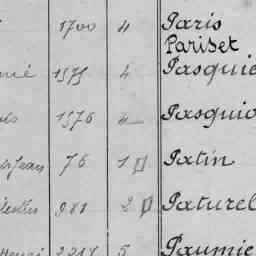 1700 4 Paris
Pariset
1575 4 Pasquie
1576 4 Pasquio
Jean 76 1 Patin
981 2 Paturel
5 Paumie